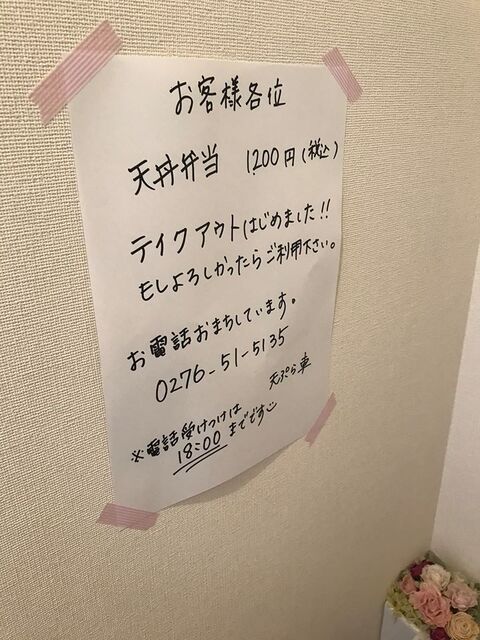 お客様各位
天丼弁当 1200円(税込)
テイクアウトはじめました!!
もしよろしかったらご利用下さい。
お電話おまちしています。
0276-51-5135
天ぷら車
※電話受けつけは
18:00 までです